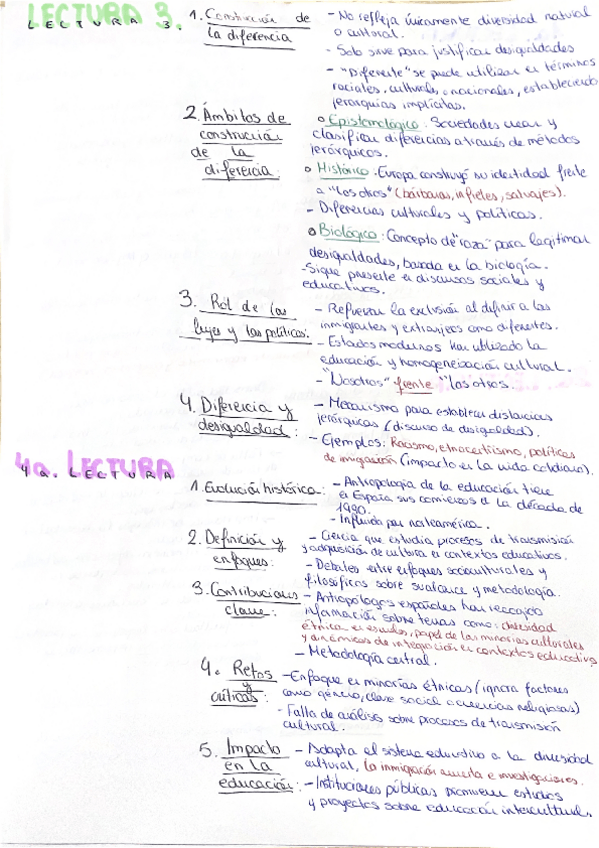 LECTURA 3.
LECTURA 3.
1. Construcción de
la diferencia
- No refleja únicamente diversidad natural
o cultural.
- Solo sirve para justificar desigualdades
- "Diferente" se puede utilizar en términos
raciales, culturales, o nacionales, estableciendo
jerarquías implícitas.
2. Ámbitos de
construcción
de la
diferencia
o Epistemológico: Sociedades crean y
clasifican diferencias a través de métodos
jerárquicos.
o Histórico: Europa construyó su identidad frente
a "los otros" (bárbaros, infieles, salvajes).
- Diferencias culturales y políticas.
o Biológico: Concepto de "raza" para legitimar
desigualdades, basada en la biología.
- Sigue presente en discursos sociales y
educativos.
3. Rol de las
leyes y las políticas:
- Refuerzan la exclusión al definir a los
inmigrantes y extranjeros como diferentes.
- Estados modernos han utilizado la
educación y homogeneización cultural.
- "Nosotros" frente "los otros.
4. Diferencia y
desigualdad:
- Mecanismo para establecer distancias
jerárquicas (discurso de desigualdad).
- Ejemplos: Racismo, etnocentrismo, políticas
de inmigración (impacto en la vida cotidiana).
4a. LECTURA
4a. LECTURA
1. Evolución histórica:
- Antropología de la educación tiene
en España sus comienzos a la década de
1990.
- Influida por norteamérica.
2. Definición y
enfoques:
- Ciencia que estudia procesos de transmisión
y adquisición de cultura en contextos educativos.
- Debates entre enfoques socioculturales y
filosóficos sobre su alcance y metodología.
3. Contribuciones
clave:
- Antropólogos españoles han recogido
información sobre temas como: diversidad
étnica en escuelas, papel de las minorías culturales
y dinámicas de integración en contextos educativos
- Metodología central.
4. Retos
y
críticas:
- Enfoque en minorías étnicas (ignora factores
como género, clase social o creencias religiosas)
- Falta de análisis sobre procesos de transmisión
cultural.
5. Impacto
en la
educación:
- Adapta el sistema educativo a la diversidad
cultural, la inmigración aumenta e investigaciones.
- Instituciones públicas promueven estudios
y proyectos sobre educación intercultural.